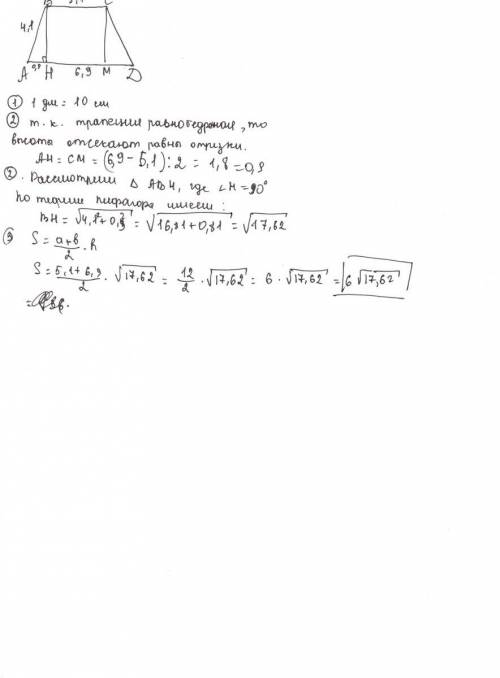 4,1
A 0,9 H 6,9 M D
① 1 дм = 10 см
② т.к. трапеция равнобедренная, то
высоты отсекают равны отрезки.
AH = CM = (6,9 - 5,1) : 2 = 1,8 = 0,9
2. Рассмотрим Δ ABH, где ∠H = 90°
по теореме пифагора имеем :
BH = √4,1² + 0,9² = √16,81 + 0,81 = √17,62
③ S = a+b/2 · h
S = 5,1 + 6,9/2 · √17,62 = 12/2 · √17,62 = 6 · √17,62 = 6 √17,62